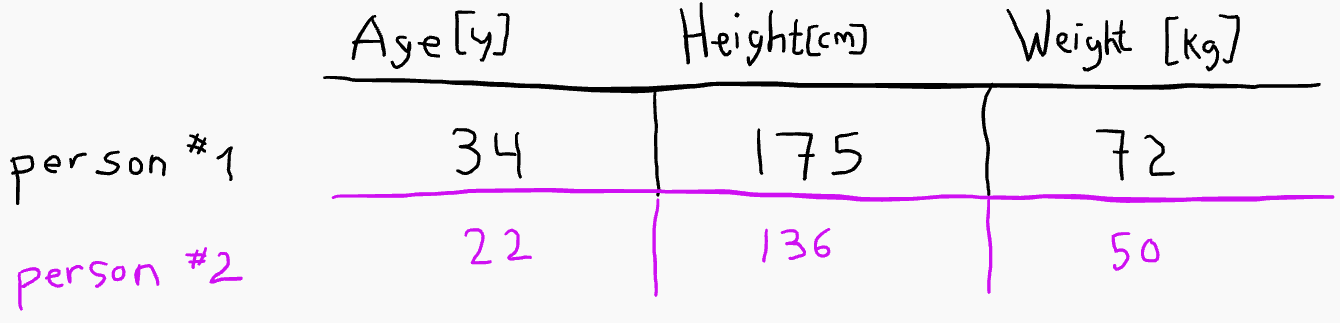 Age [y] Height [cm] Weight [kg]
person #1 34 175 72
person #2 22 136 50